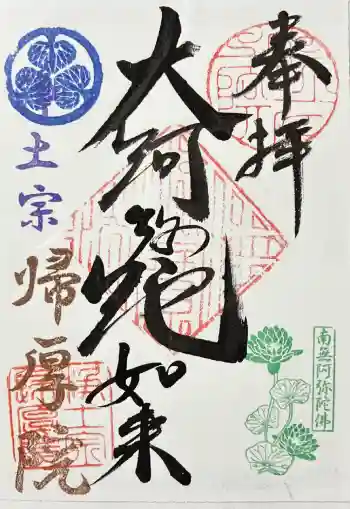 奉拝
南無阿弥陀佛
大阿弥陀如来
土宗
帰厚院